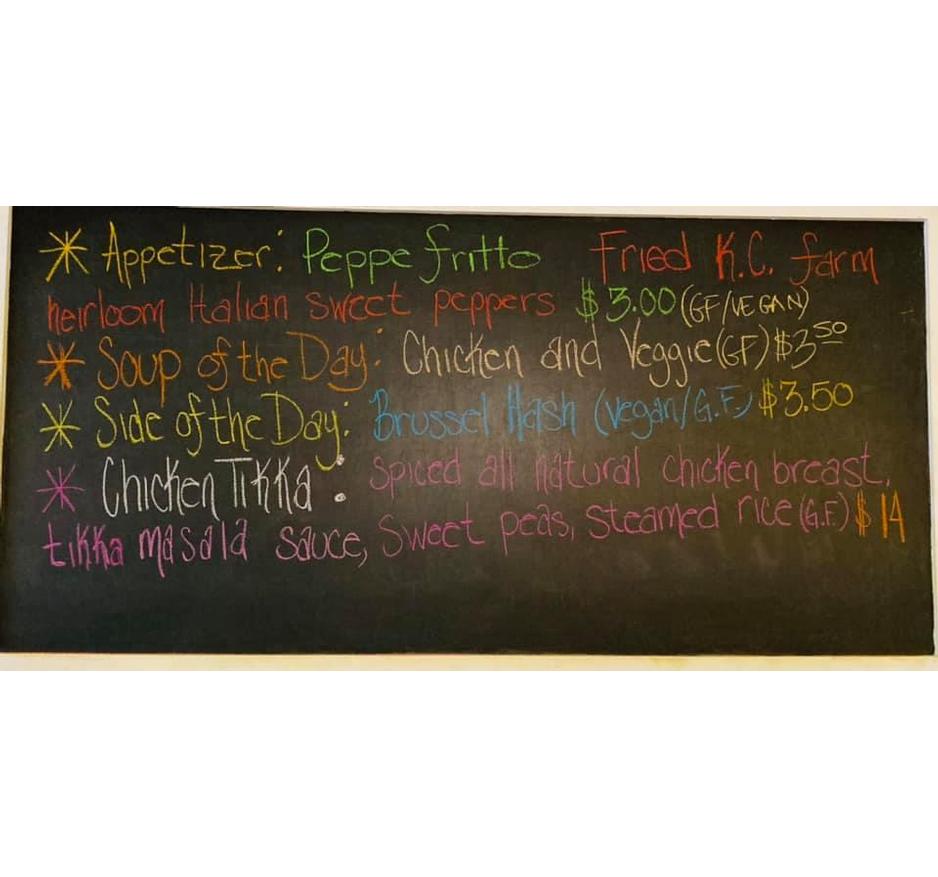 * Appetizer: Peppe fritto Fried K.C. farm
heirloom Italian sweet peppers $3.00 (GF/VEGAN)
* Soup of the Day: Chicken and Veggie (GF) $3.50
* Side of the Day: Brussel Hash (vegan/G.F.) $3.50
* Chicken Tikka: Spiced all natural chicken breast,
tikka masala sauce, Sweet peas, steamed rice (G.F.) $14